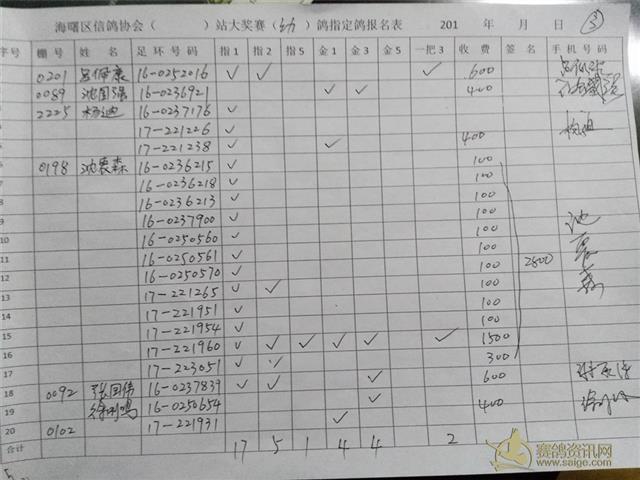 海曙区信鸽协会（ ）站大奖赛（幼）鸽指定鸽报名表 201 年 月 日 ③
序号 棚号 姓名 足环号码 指1 指2 指5 金1 金3 金5 一把3 收费 签名 手机号码
0201 16-0252016 ✓ ✓ ✓ 600
0089 池国强 16-0236921 ✓ ✓ 400
2225 杨迪 16-0237176 ✓
17-221226 ✓
17-221238 ✓ ✓ 400 杨迪
0198 池表森 16-0236215 ✓ 100
16-0236218 ✓ 100
16-0236213 ✓ 100
9 16-0237900 ✓ 100
10 16-0250560 ✓ 100
11 16-0250561 ✓ 100 2800
12 16-0250570 ✓ 100
13 17-221265 ✓ ✓ 100
14 17-221951 ✓ 100
15 17-221954 ✓ 100
16 17-221960 ✓ ✓ ✓ ✓ ✓ ✓ 1500
17 17-223051 ✓ ✓ 300
18 0092 张国伟 16-0237839 ✓ ✓ ✓ 600
19 16-0250654 ✓ 400
20 0102 17-221931 ✓
合计 17 5 1 4 4 2
赛鸽资讯网
www.saige.com